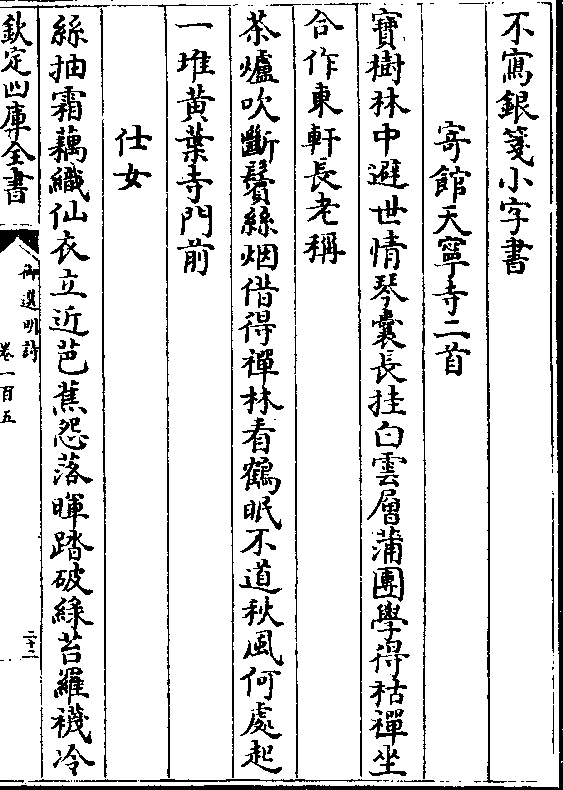 不寫銀箋小字書
寄館天寧寺二首
寳樹林中避世情琴囊長挂白雲層蒲團學得枯禪坐
合作東軒長老稱
茶爐吹斷鬢絲烟借得禪林看鶴眠不道秋風何處起
一堆黄葉寺門前
仕女
絲抽霜藕織仙衣立近芭蕉怨落暉踏破緑苔羅襪冷
欽定四庫全書
御選明詩
卷一百五
二十二